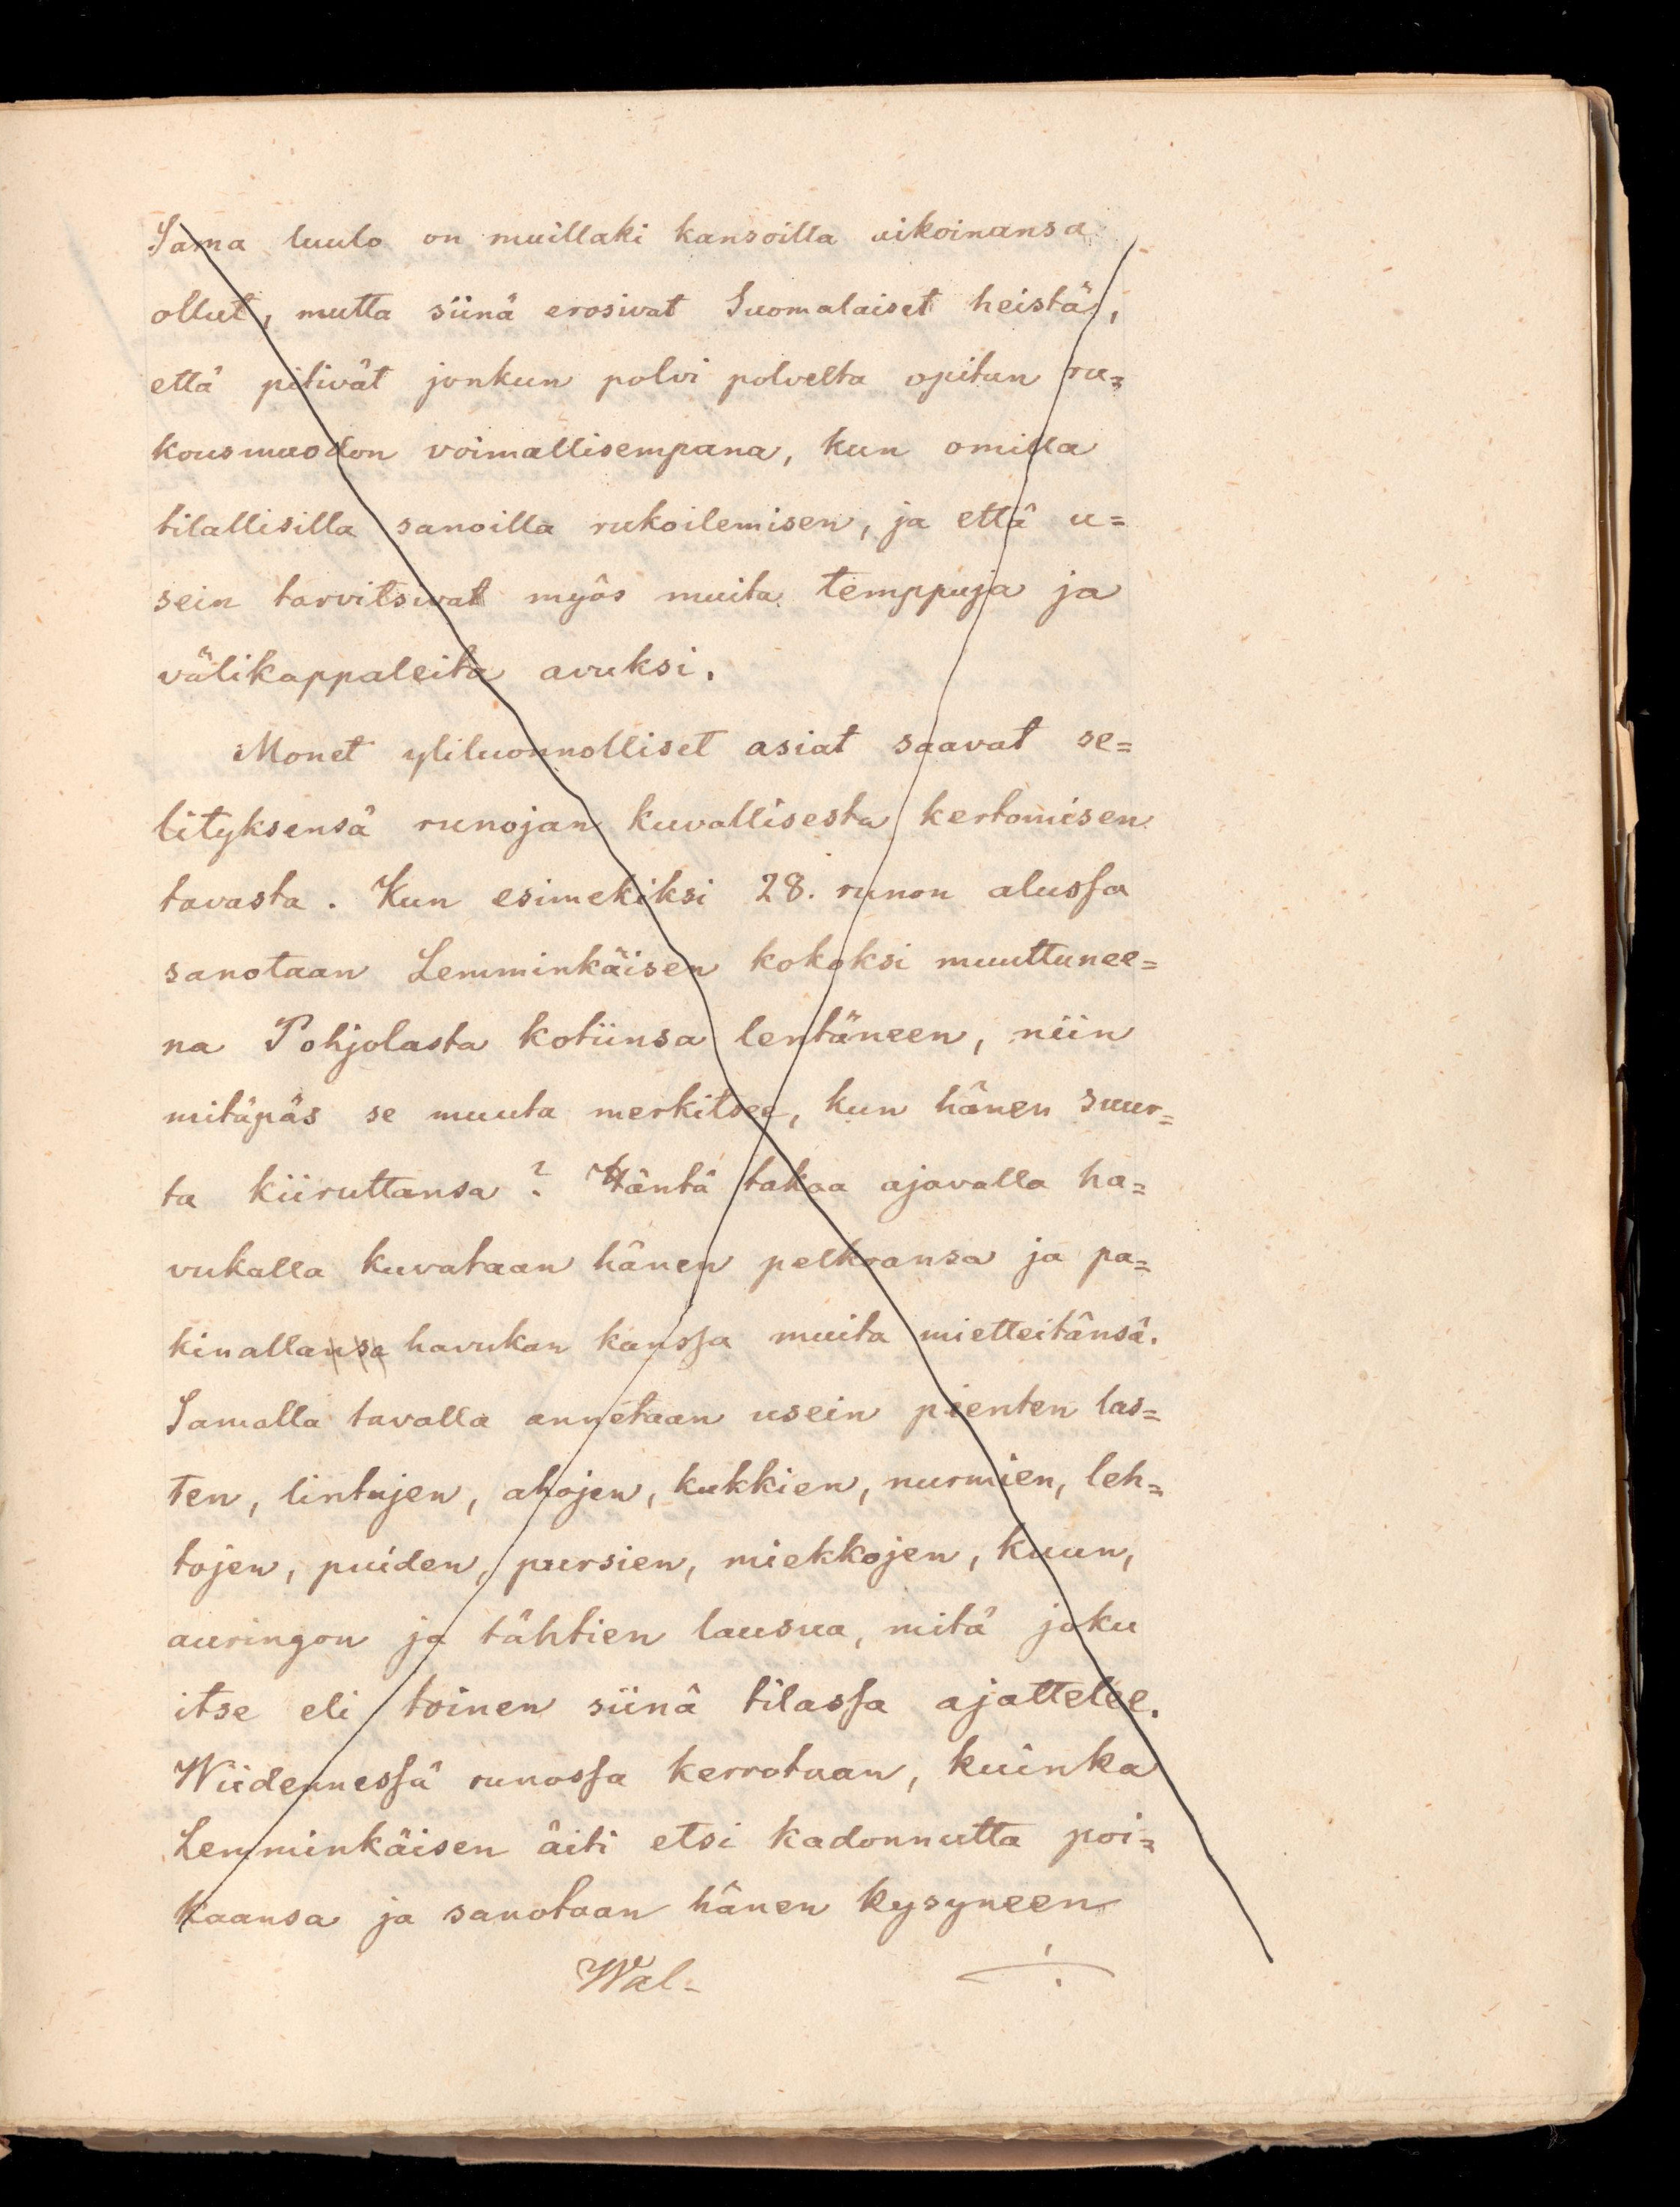 Sama luulo on muillaki kansoilla aikoinansa
ollut, mutta siinä erosivat Suomalaiset heistä,
että pitivät jonkun polvi polvelta opitun ru=
kousmuodon voimallisempana, kun omilla
tilallisilla sanoilla rukoilemisen, ja että u=
sein tarvitsivat myös muita temppuja ja
välikappaleita avuksi.
Monet yliluonnolliset asiat saavat se=
lityksensä runojan kuvallisesta kertomisen
tavasta. Kun esimekiksi 28. runon alussa
sanotaan Lemminkäisen kokoksi muuttunee=
na Pohjolasta kotiinsa lentäneen, niin
mitäpäs se muuta merkitsee, kun hänen suur=
ta kiiruttansa? Häntä takaa ajavalla ha=
vukalla kuvataan hänen pelkoansa ja pa=
kinallansa havukan kanssa muita mietteitänsä.
Samalla tavalla annetaan usein pienten las=
ten, lintujen, ahojen, kukkien, nurmien, leh=
tojen, puiden, pursien, miekkojen, kuun,
auringon ja tähtien lausua, mitä joku
itse eli toinen siinä tilassa ajattelee.
Wiidennessä runossa kerrotaan, kuinka
Lemminkäisen äiti etsi kadonnutta poi=
kaansa ja sanotaan hänen kysyneen
Wal-